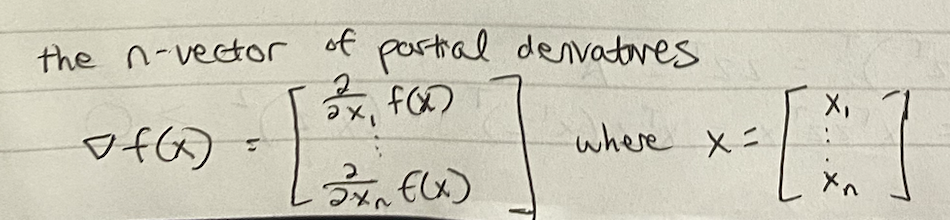 the n-vector of partial derivatives
∇f(x) = [ ∂/∂x₁ f(x) ⋮ ∂/∂xₙ f(x) ] where x = [ x₁ ⋮ xₙ ]